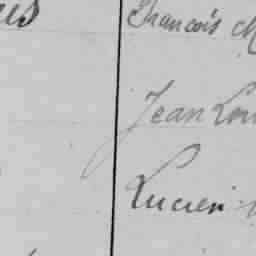 François
Jean Lou
Lucien